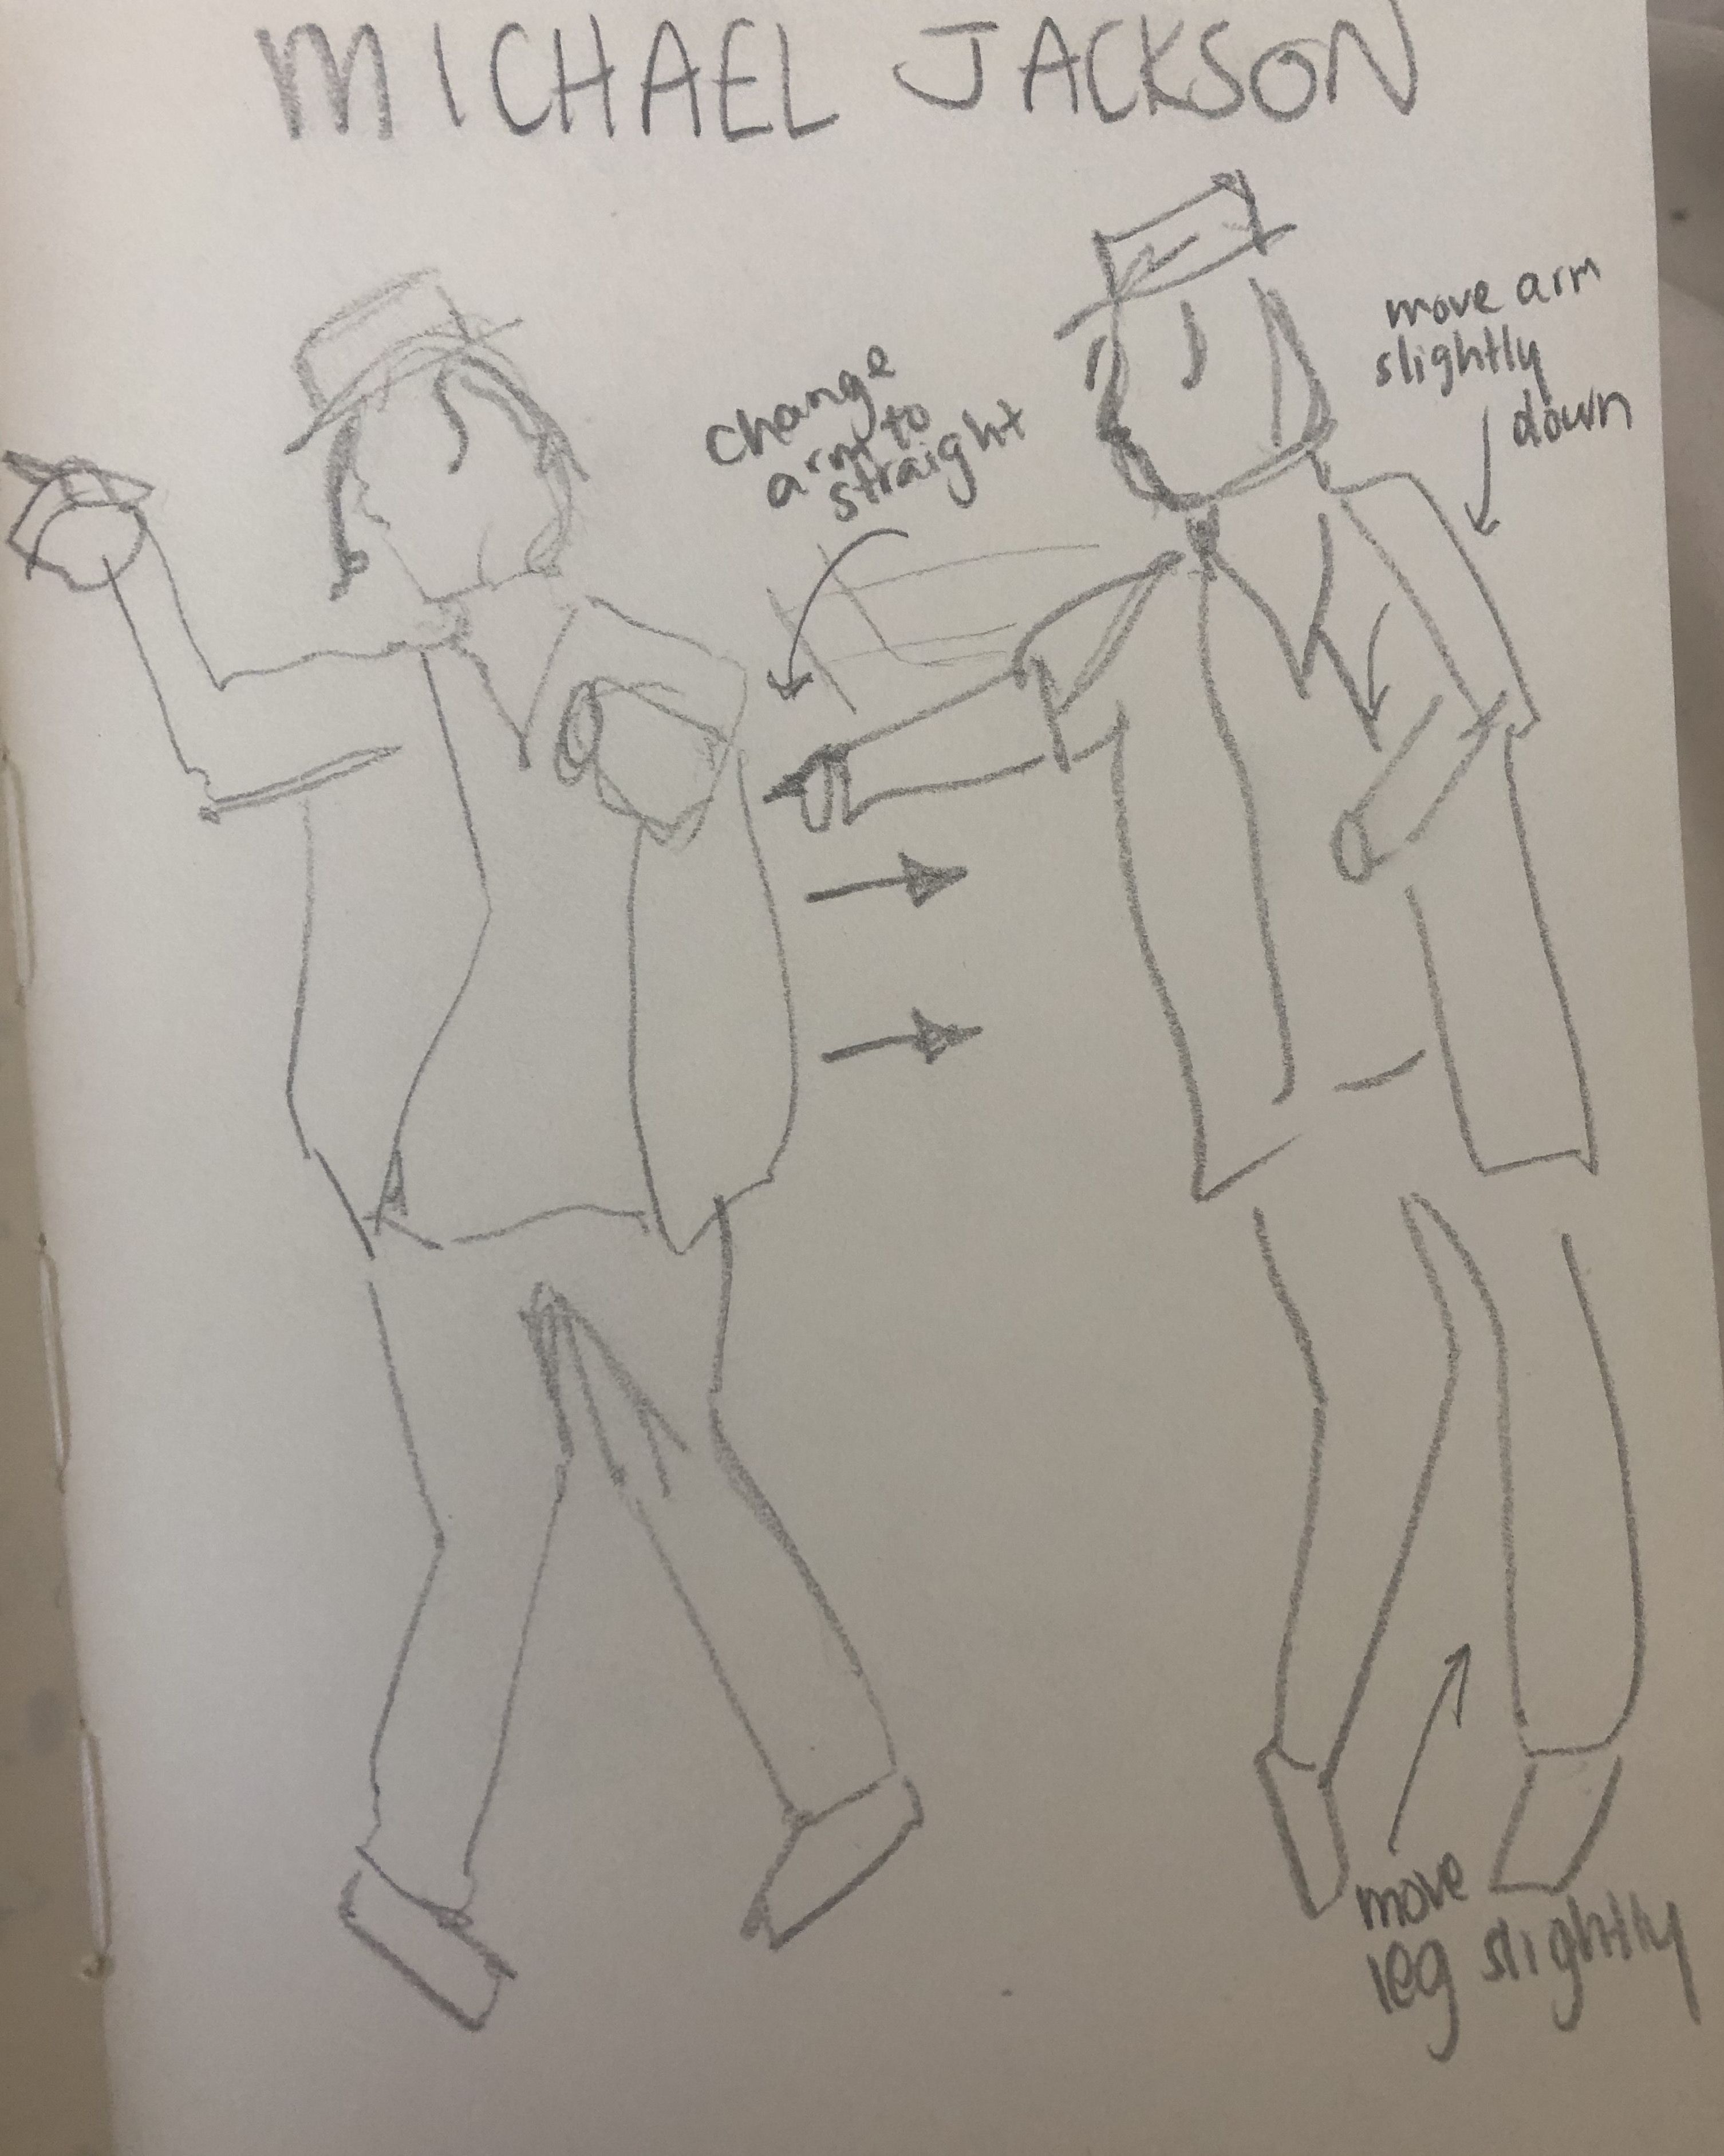 MICHAEL JACKSON
change
arm to
straight
move arm
slightly
down
move
leg slightly